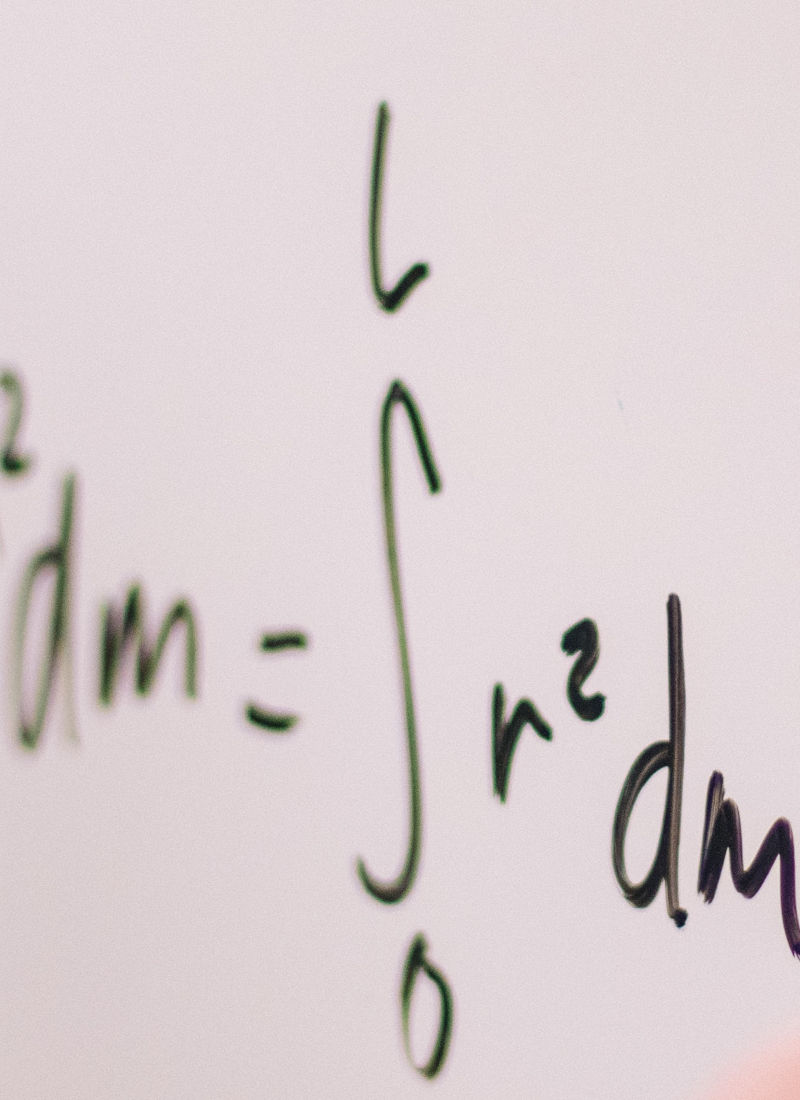 ² dm = ∫₀ᴸ r² dm